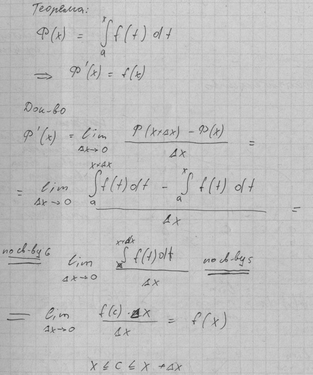 Теорема:
Φ(x) = ∫ₐˣ f(t) dt
⟹ Φ'(x) = f(x)
Док-во
Φ'(x) = lim_{Δx→0} (Φ(x+Δx) - Φ(x)) / Δx =
= lim_{Δx→0} (∫ₐ^{x+Δx} f(t) dt - ∫ₐˣ f(t) dt) / Δx =
по св-ву 6 lim_{Δx→0} (∫ₓ^{x+Δx} f(t) dt) / Δx по св-ву 5
= lim_{Δx→0} (f(c) · Δx) / Δx = f(x)
x ≤ c ≤ x + Δx